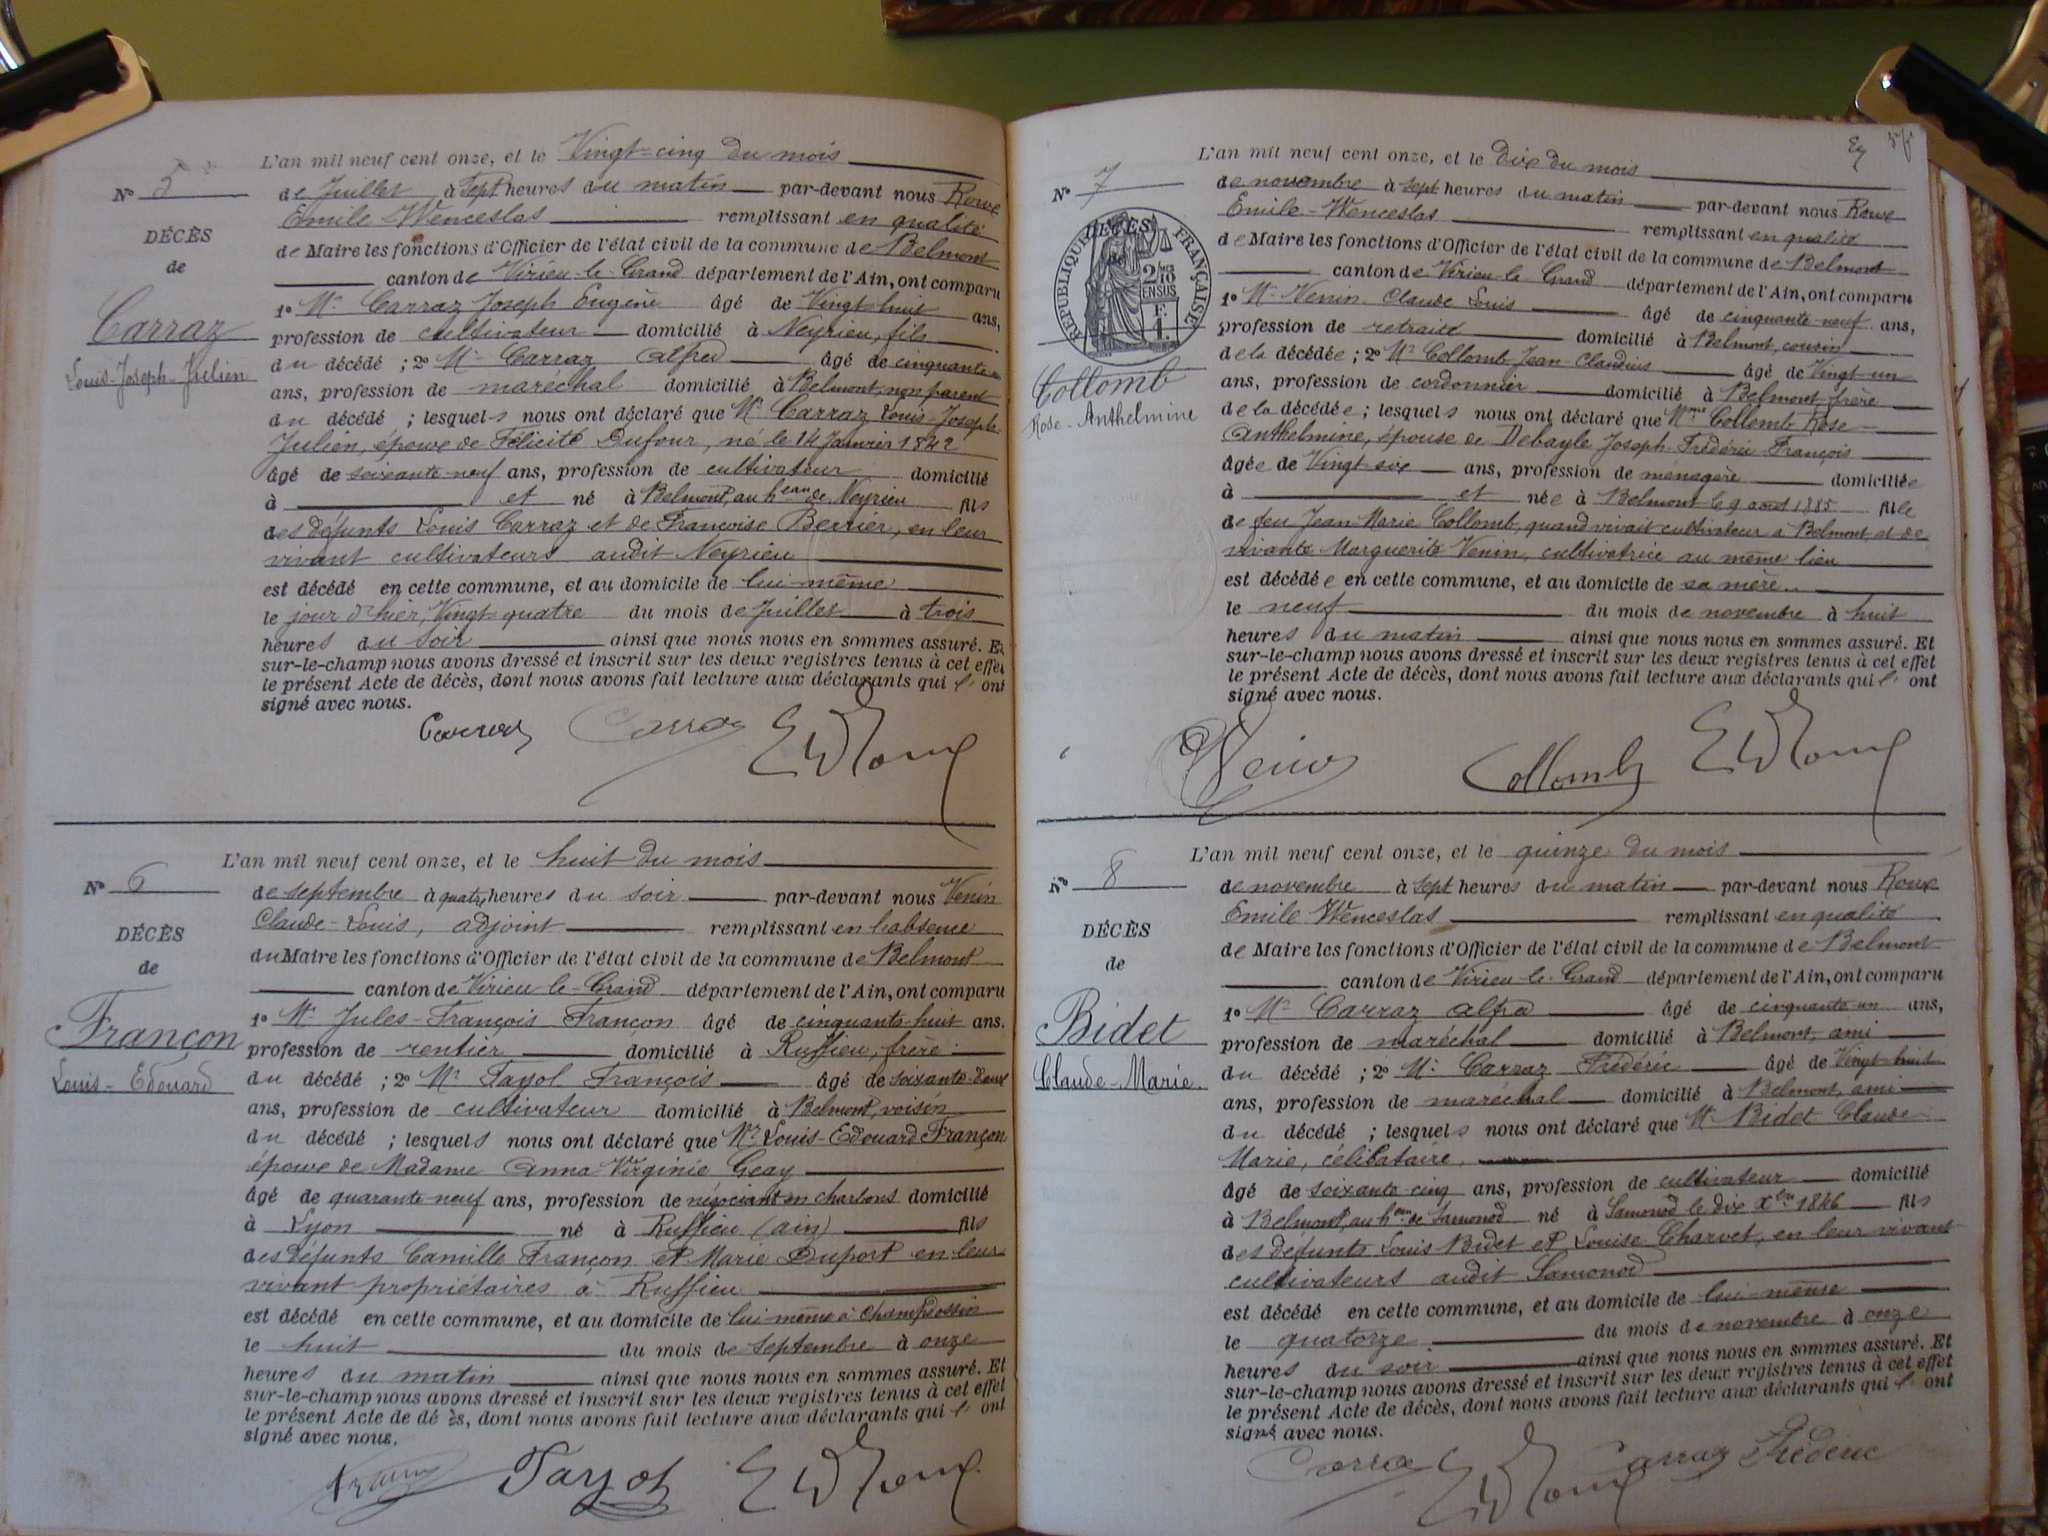 L'an mil neuf cent onze, et le Vingt-cinq du mois
N° 5
de Juillet à sept heures du matin par-devant nous Roux
Emile Wenceslas remplissant en qualité
DÉCÈS
de Maire les fonctions d'Officier de l'état civil de la commune de Belmont
de
canton de Virieu-le-Grand département de l'Ain, ont comparu
1° Mr Carraz Joseph Eugène âgé de Vingt huit ans,
Carraz
profession de cultivateur domicilié à Neyrieu, fils
Louis-Joseph-Julien
du décédé ; 2° Mr Carraz Alfred âgé de cinquante
ans, profession de maréchal domicilié à Belmont, non parent
du décédé ; lesquels nous ont déclaré que Mr Carraz Louis-Joseph-
Julien, époux de Félicité Dufour, né le 14 Janvier 1842
âgé de soixante-neuf ans, profession de cultivateur domicilié
à et né à Belmont, au heau de Neyrieu fils
des défunts Louis Carraz et de Françoise Berrier, en leur
vivant cultivateurs audit Neyrieu
est décédé en cette commune, et au domicile de lui-même
le jour d'hier, Vingt quatre du mois de Juillet à trois
heures du soir ainsi que nous nous en sommes assuré. Et
sur-le-champ nous avons dressé et inscrit sur les deux registres tenus à cet effet
le présent Acte de décès, dont nous avons fait lecture aux déclarants qui l'ont
signé avec nous.
Carraz Carraz E W Roux
L'an mil neuf cent onze, et le huit du mois
N° 6
de septembre à quatre heures du soir par-devant nous Venin
Claude-Louis, adjoint remplissant en l'absence
DÉCÈS
du Maire les fonctions d'Officier de l'état civil de la commune de Belmont
de
canton de Virieu-le-Grand département de l'Ain, ont comparu
Françon
1° Mr Jules-François Françon âgé de cinquante-huit ans.
profession de rentier domicilié à Ruffieu, frère
Louis-Edouard
du décédé ; 2° Mr Tayol François âgé de soixante-deux
ans, profession de cultivateur domicilié à Belmont, voisin
du décédé ; lesquels nous ont déclaré que Mr Louis-Edouard Françon
époux de Madame Anna Virginie Geay
âgé de quarante-neuf ans, profession de négociant en charbons domicilié
à Lyon né à Ruffieu (ain) fils
des défunts Camille Françon et Marie Duport en leur
vivant propriétaires à Ruffieu
est décédé en cette commune, et au domicile de lui-même à Champdossin
le huit du mois de septembre à onze
heures du matin ainsi que nous nous en sommes assuré. Et
sur-le-champ nous avons dressé et inscrit sur les deux registres tenus à cet effet
le présent Acte de dé ès, dont nous avons fait lecture aux déclarants qui l'ont
signé avec nous.
Tayol E W Roux
L'an mil neuf cent onze, et le Dix du mois
N° 7
de novembre à sept heures du matin par-devant nous Roux
Emile-Wenceslas remplissant en qualité
RÉPUBLIQUE FRANÇAISE
DÉCÈS
2/10 EN SUS
F. 1.
de Maire les fonctions d'Officier de l'état civil de la commune de Belmont
canton de Virieu-le Grand département de l'Ain, ont comparu
1° Mr Venin Claude Louis âgé de cinquante-neuf ans,
profession de retraité domicilié à Belmont, cousin
de la décédée ; 2° Mr Collomb Jean-Claudius âgé de Vingt-un
Collomb
ans, profession de cordonnier domicilié à Belmont frère
Rose-Anthelmine
de la décédée ; lesquels nous ont déclaré que Mme Collomb Rose-
Anthelmine, épouse de Debayle Joseph-Frédéric-François
âgée de Vingt-six ans, profession de ménagère domiciliée
à et née à Belmont le 9 août 1885 fille
de feu Jean-Marie Collomb, quand vivait cultivateur à Belmont et de
vivante Marguerite Venin, cultivatrice au même lieu
est décédée en cette commune, et au domicile de sa mère
le neuf du mois de novembre à huit
heures du matin ainsi que nous nous en sommes assuré. Et
sur-le-champ nous avons dressé et inscrit sur les deux registres tenus à cet effet
le présent Acte de décès, dont nous avons fait lecture aux déclarants qui l'ont
signé avec nous.
Venin Collomb E W Roux
L'an mil neuf cent onze, et le quinze du mois
N° 8
de novembre à sept heures du matin par-devant nous Roux
Emile Wenceslas remplissant en qualité
DÉCÈS
de Maire les fonctions d'Officier de l'état civil de la commune de Belmont
de
canton de Virieu-le-Grand département de l'Ain, ont comparu
Bidet
1° Mr Carraz Alfred âgé de cinquante-un ans,
profession de maréchal domicilié à Belmont, ami
Claude-Marie
du décédé ; 2° Mr Carraz Frédéric âgé de Vingt-huit
ans, profession de maréchal domicilié à Belmont, ami
du décédé ; lesquels nous ont déclaré que Mr Bidet Claude-
Marie, célibataire,
âgé de soixante-cinq ans, profession de cultivateur domicilié
à Belmont, au heau de Samonod né à Samonod le dix Xbre 1846 fils
des défunts Louis Bidet et Louise Charvet, en leur vivant
cultivateurs audit Samonod
est décédé en cette commune, et au domicile de lui-même
le quatorze du mois de novembre à onze
heures du soir ainsi que nous nous en sommes assuré. Et
sur-le-champ nous avons dressé et inscrit sur les deux registres tenus à cet effet
le présent Acte de décès, dont nous avons fait lecture aux déclarants qui l'ont
signé avec nous.
Carraz E W Roux Carraz Frédéric